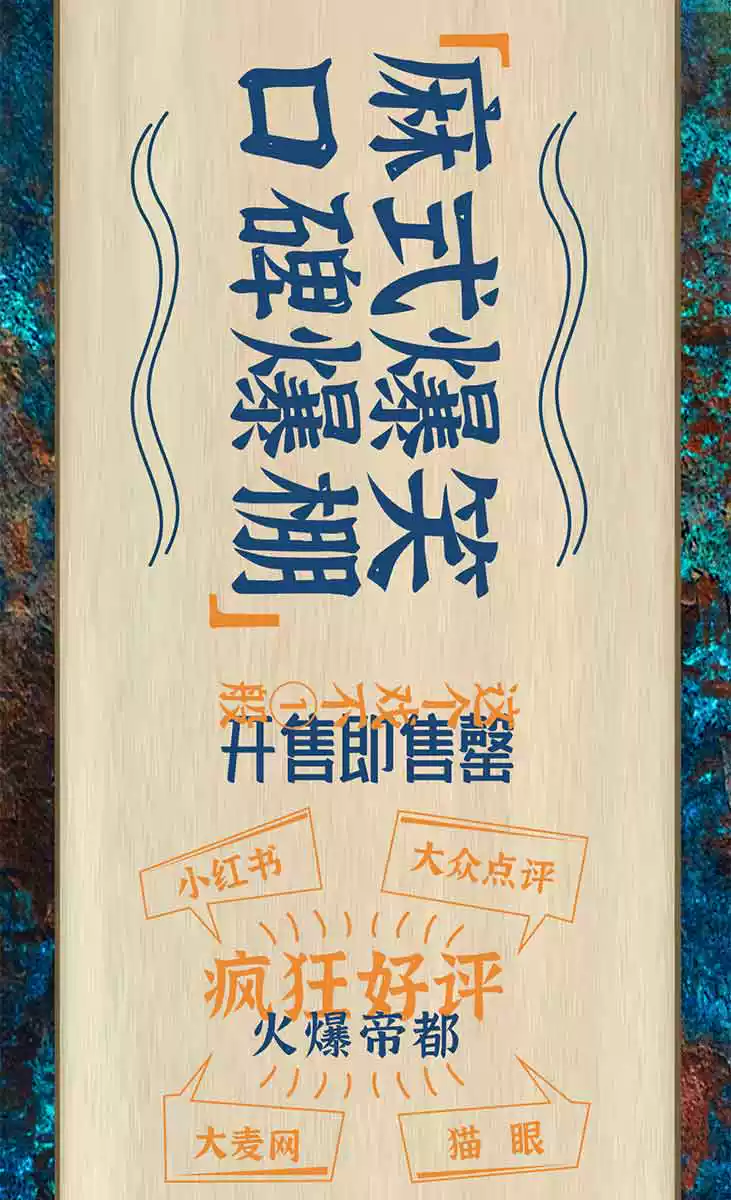 「麻式爆笑
口碑爆棚」
这个戏不①般
开售即售罄
小红书
大众点评
疯狂好评
火爆帝都
大麦网
猫眼